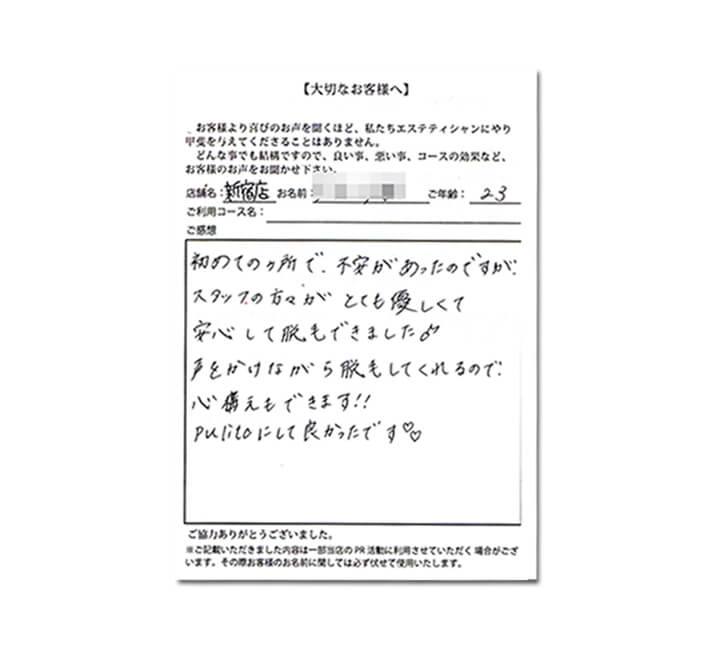 【大切なお客様へ】
お客様より喜びのお声を聞くほど、私たちエステティシャンにやり
甲斐を与えてくださることはありません。
どんな事でも結構ですので、良い事、悪い事、コースの効果など、
お客様のお声をお聞かせ下さい。
店舗名：新宿店 お名前： ご年齢：23
ご利用コース名：
ご感想
初めてのヶ所で、不安があったのですが、
スタッフの方々がとても優しくて
安心して脱毛できました♂
声をかけながら脱毛してくれるので、
心構えもできます!!
pulitoにして良かったです♡♡
ご協力ありがとうございました。
※ご記載いただきました内容は一部当店のPR活動に利用させていただく場合がござ
います。その際お客様のお名前に関しては必ず伏せて使用いたします。